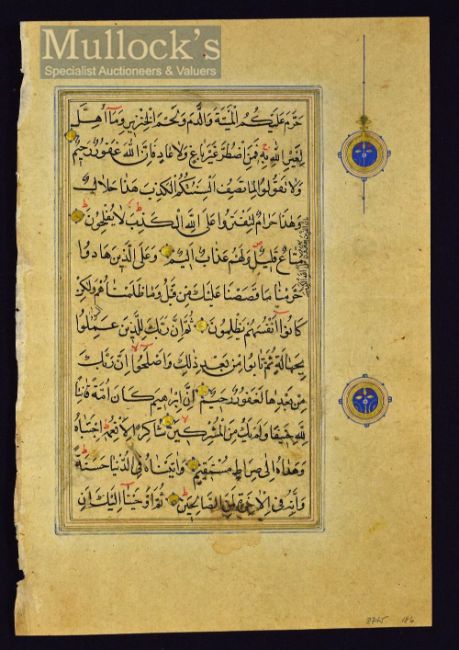 Mullock's
Specialist Auctioneers & Valuers
حَرَّمَ عَلَيْكُمُ الْمَيْتَةَ وَالدَّمَ وَلَحْمَ الْخِنْزِيرِ وَمَا أُهِلَّ
لِغَيْرِ اللهِ بِهِ فَمَنِ اضْطُرَّ غَيْرَ بَاغٍ وَلَا عَادٍ فَإِنَّ اللهَ غَفُورٌ رَحِيمٌ
وَلَا تَقُولُوا لِمَا تَصِفُ أَلْسِنَتُكُمُ الْكَذِبَ هَذَا حَلَالٌ
وَهَذَا حَرَامٌ لِتَفْتَرُوا عَلَى اللهِ الْكَذِبَ لَا يُفْلِحُونَ
مَتَاعٌ قَلِيلٌ وَلَهُمْ عَذَابٌ أَلِيمٌ وَعَلَى الَّذِينَ هَادُوا
حَرَّمْنَا مَا قَصَصْنَا عَلَيْكَ مِنْ قَبْلُ وَمَا ظَلَمْنَاهُمْ وَلَكِنْ
كَانُوا أَنْفُسَهُمْ يَظْلِمُونَ ثُمَّ إِنَّ رَبَّكَ لِلَّذِينَ عَمِلُوا
بِجَهَالَةٍ ثُمَّ تَابُوا مِنْ بَعْدِ ذَلِكَ وَأَصْلَحُوا إِنَّ رَبَّكَ
مِنْ بَعْدِهَا لَغَفُورٌ رَحِيمٌ إِنَّ إِبْرَاهِيمَ كَانَ أُمَّةً قَانِتًا
لِلَّهِ حَنِيفًا وَلَمْ يَكُ مِنَ الْمُشْرِكِينَ شَاكِرًا لِأَنْعُمِهِ اجْتَبَاهُ
وَهَدَاهُ إِلَى صِرَاطٍ مُسْتَقِيمٍ وَآتَيْنَاهُ فِي الدُّنْيَا حَسَنَةً
وَإِنَّهُ فِي الْآخِرَةِ لَمِنَ الصَّالِحِينَ ثُمَّ أَوْحَيْنَا إِلَيْكَ أَنِ